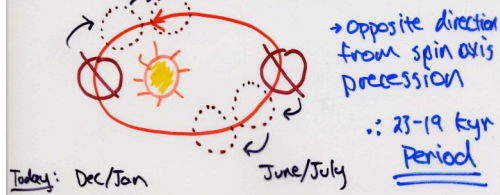 → Opposite direction
from spin axis
precession
∴ 23-19 kyr
Period
Today: Dec/Jan
June/July